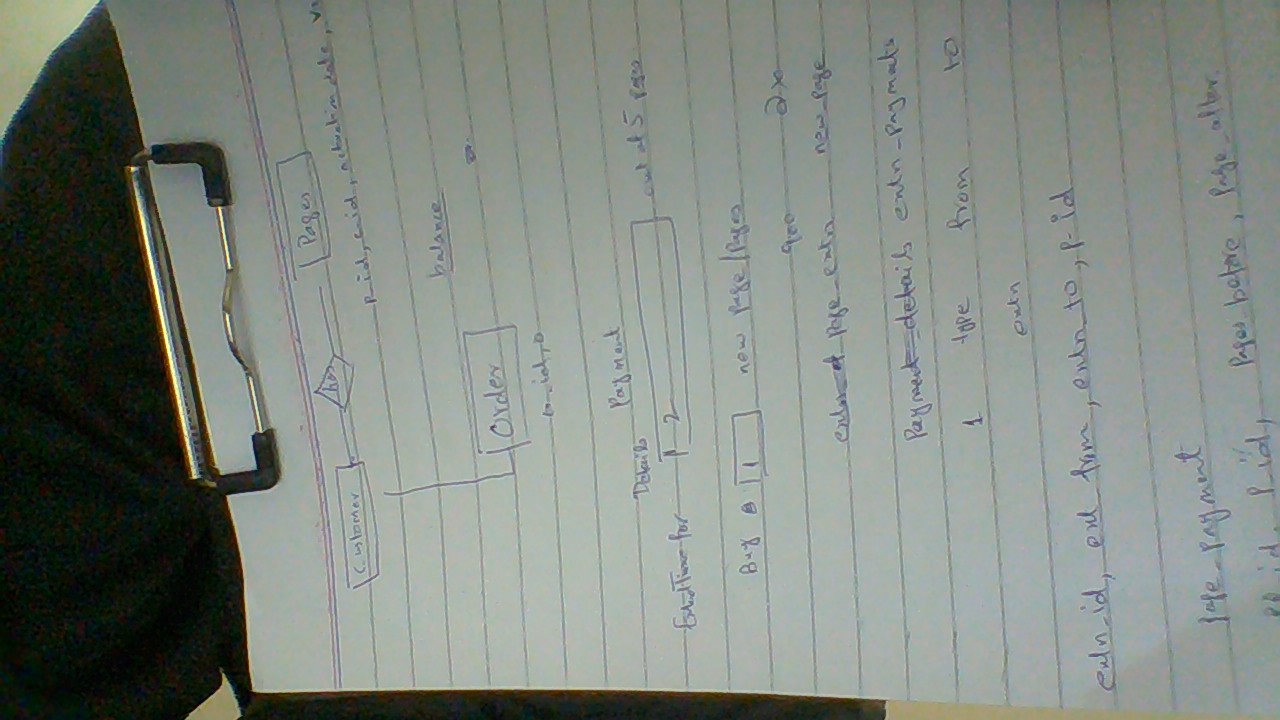 Customer has Pages
p_id, c_id, activation date,
balance
Order
o_id,
Payment
Details
out of 5 Pages
1 2
Extn Time for
Buy 1 new page/Pages
900 200
page_extn new_page
Payment_details extn_payments
1 type from to
extn
extn_id, ext_from, extn_to, p_id
page_payment
p_id, Pages_before, Page_after.